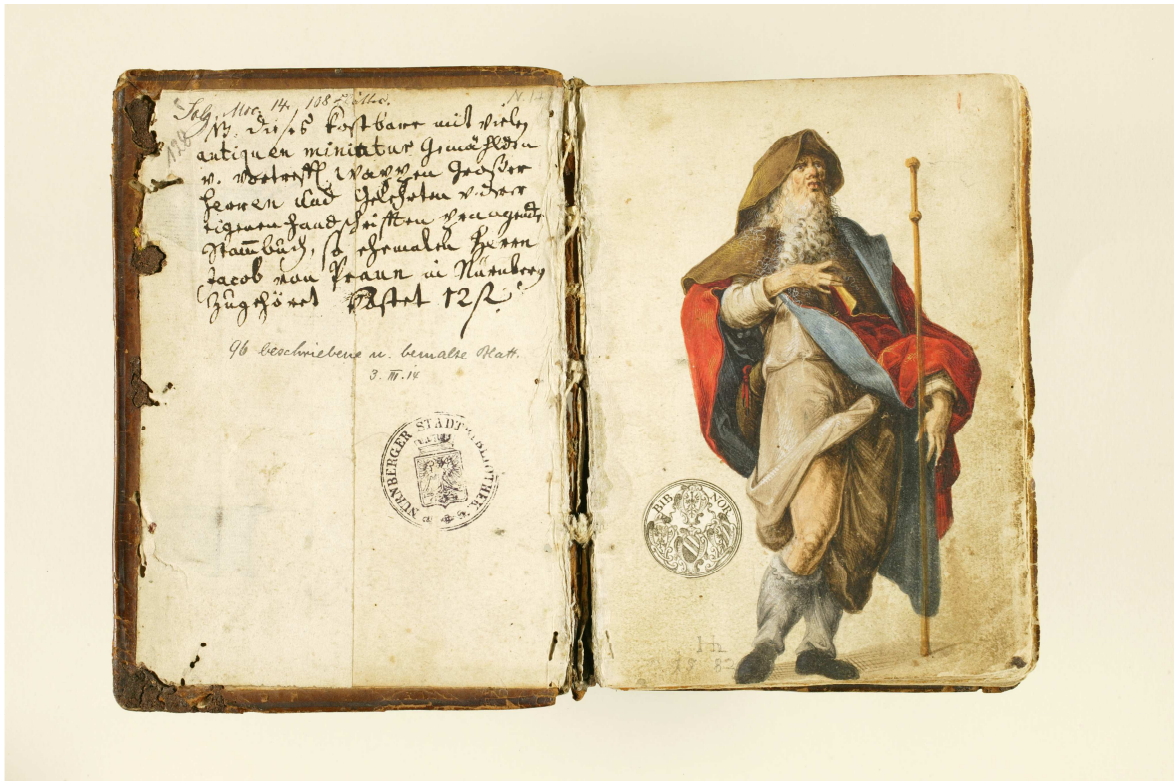 Solg. Msc. 14. 108 Blätter.
128
NB. dieses kostbare mit vielen
antiquen miniatur Gemählden
v. vortreffl. wappen Großer
Herren und Gelehrten v. derer
eigenen Handschrifften prangende
Stammbuch, so ehemalen Herrn
Jacob von Praun in Nürnberg
zugehöret kostet 12
96 beschriebene u. bemalte Blatt.
3. III. 14
NÜRNBERGER STADTBIBLIOTHEK
BIB NOR